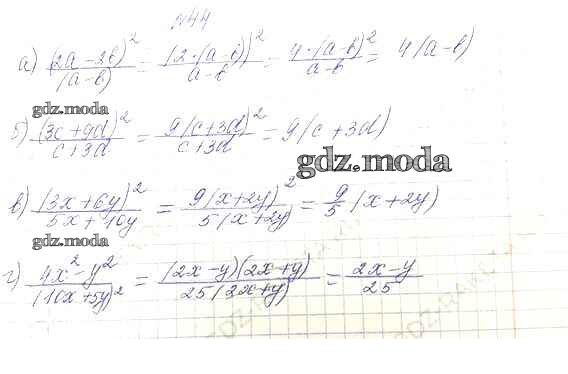 №44
а) (2a-2b)²/(a-b) = (2·(a-b))²/a-b = 4·(a-b)²/a-b = 4(a-b)
gdz.moda
б) (3c+9d)²/c+3d = 9(c+3d)²/c+3d = 9(c+3d)
gdz.moda
в) (3x+6y)²/5x+10y = 9(x+2y)²/5(x+2y) = 9/5 (x+2y)
gdz.moda
г) 4x²-y²/(10x+5y)² = (2x-y)(2x+y)/25(2x+y) = 2x-y/25